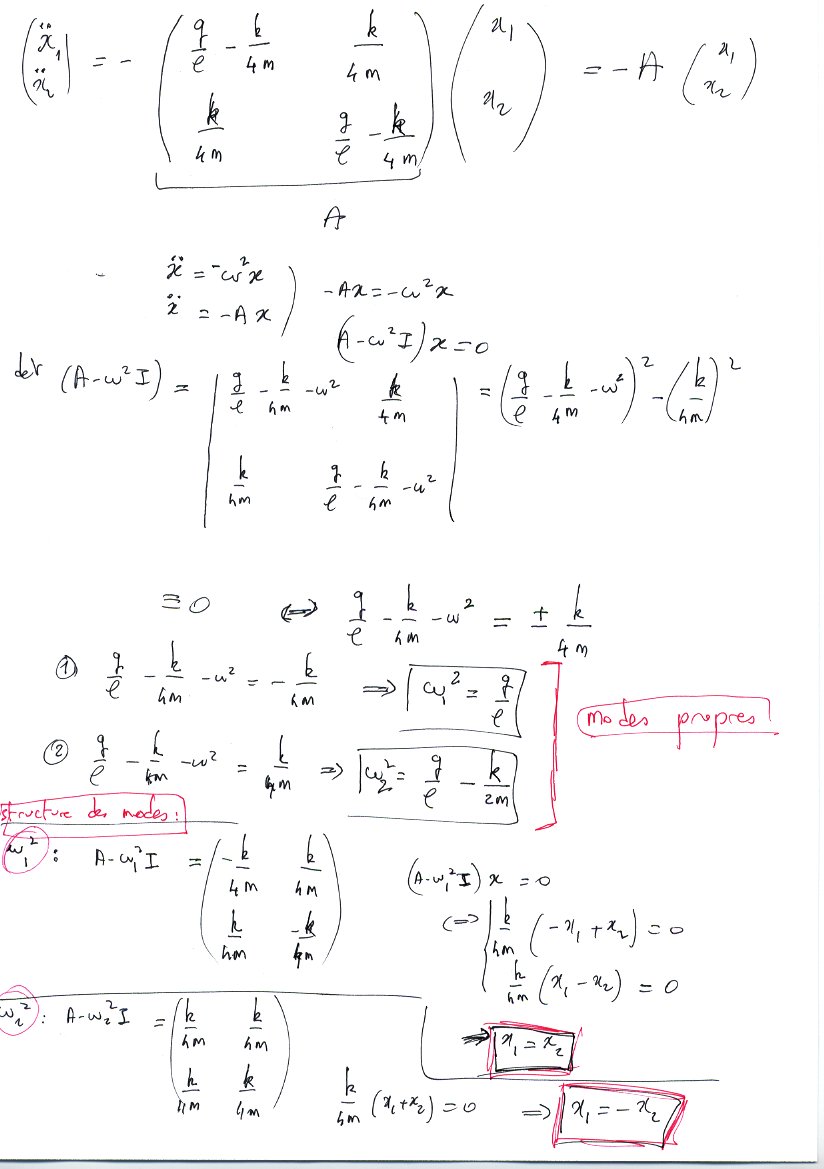 (ẍ₁ ; ẍ₂) = - ( g/ℓ - k/4m   k/4m ; k/4m   g/ℓ - k/4m ) ( x₁ ; x₂ ) = - A ( x₁ ; x₂ )
A
ẍ = -ω²x
ẍ = -A x ) -Ax = -ω²x
(A-ω²I) x = 0
det (A-ω²I) = | g/ℓ - k/4m - ω²   k/4m ; k/4m   g/ℓ - k/4m - ω² | = ( g/ℓ - k/4m - ω² )² - ( k/4m )²
≡ 0 ⇔ g/ℓ - k/4m - ω² = ± k/4m
① g/ℓ - k/4m - ω² = - k/4m ⇒ ω₁² = g/ℓ
modes propres
② g/ℓ - k/4m - ω² = k/4m ⇒ ω₂² = g/ℓ - k/2m
structure des modes :
ω₁² : A-ω₁²I = ( -k/4m   k/4m ; k/4m   -k/4m )
(A-ω₁²I) x = 0
⇔ { k/4m (-x₁ + x₂) = 0
k/4m (x₁ - x₂) = 0
⇒ x₁ = x₂
ω₂² : A-ω₂²I = ( k/4m   k/4m ; k/4m   k/4m )
k/4m (x₁+x₂) = 0 ⇒ x₁ = - x₂